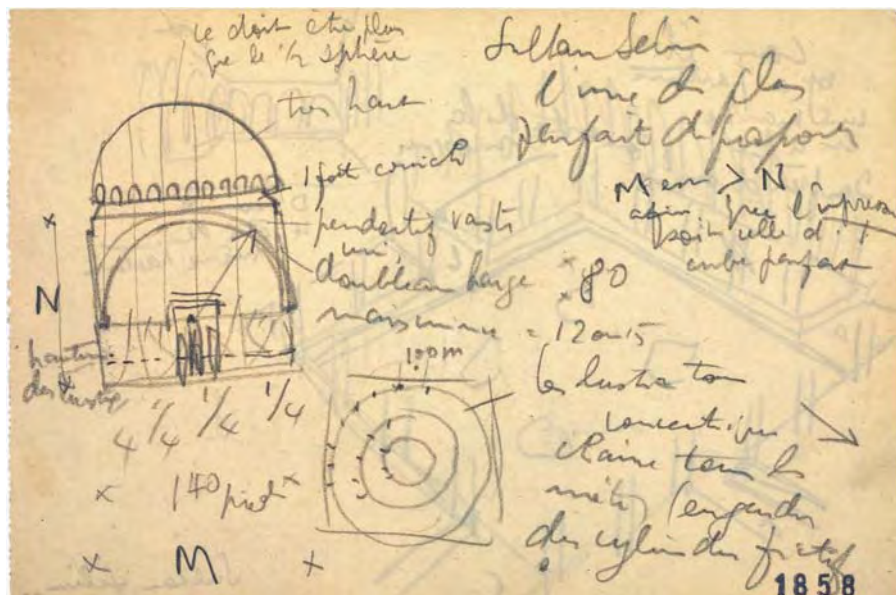 ce doit être plus
que le 1/2 sphère
très haut
1 fort corniche
pendentif vaste
uni
doubleau large
mais mince = 12 ou 15
80
N
hauteur
des lustres
1/4 1/4 1/4 1/4
140 pieds
M
Sultan Selim
l'une des plus
parfait
M > N
afin que l'impression
soit celle d'1
cube parfait
moi
les lustres tous
concentriques
chaine tous les
mètres (engendre
des cylindres fictifs
1858